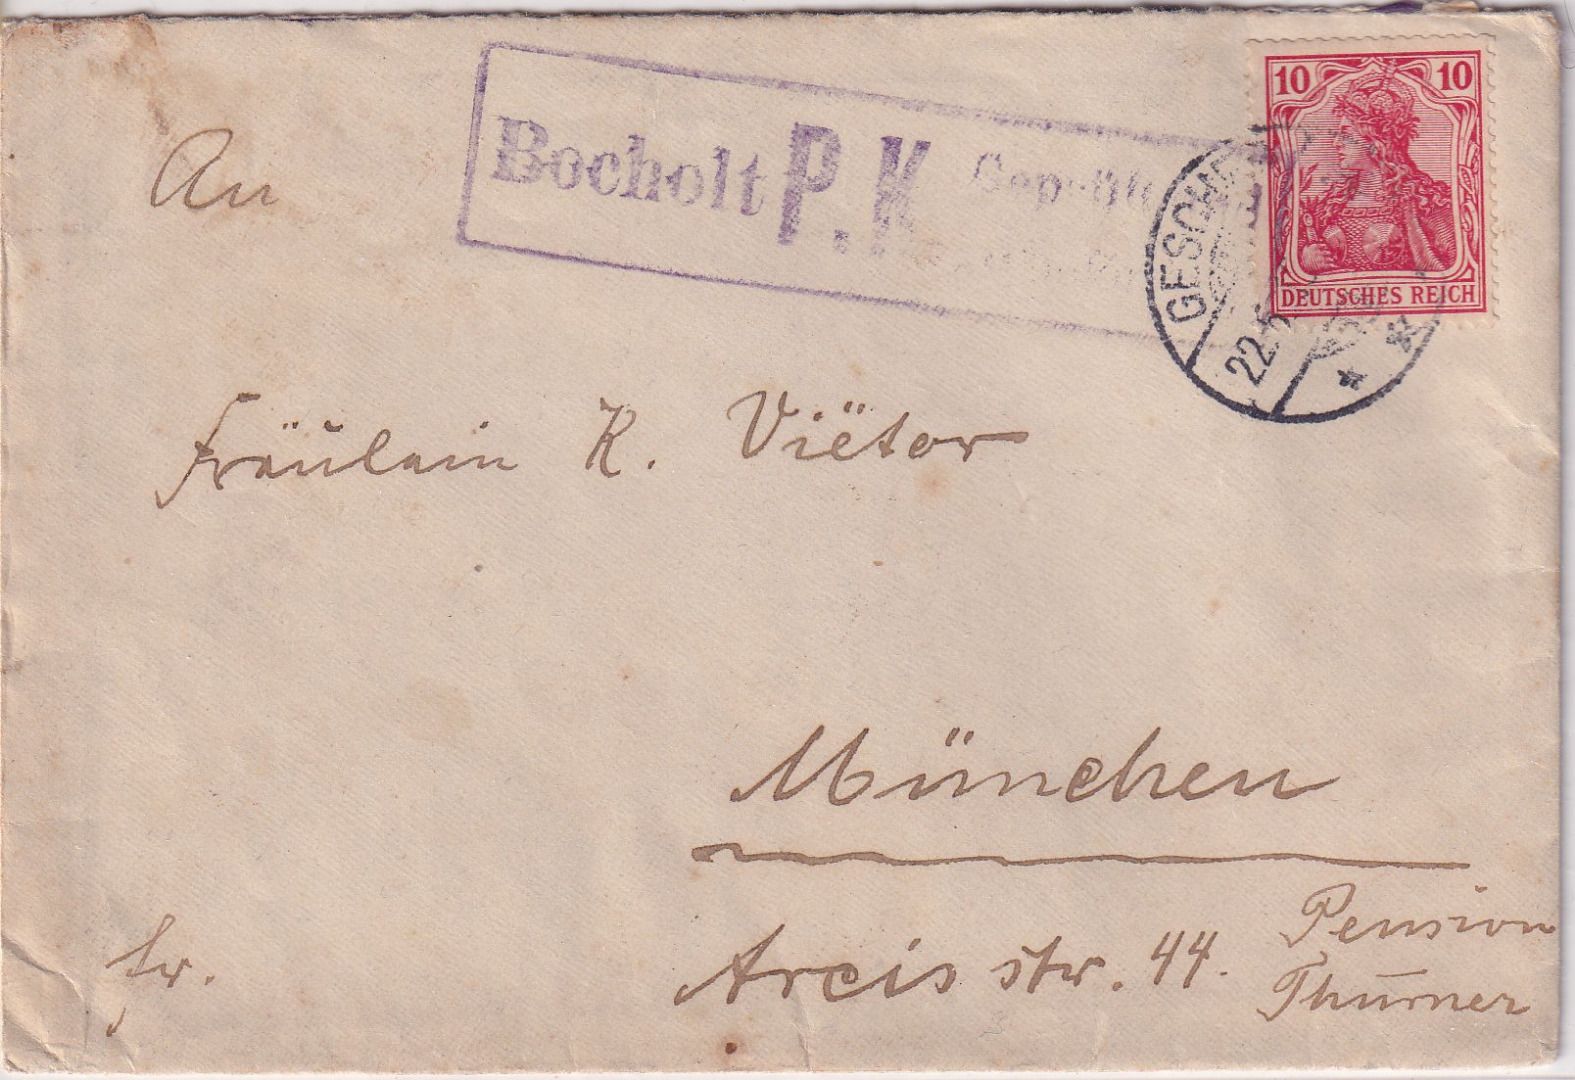 Bocholt P.K
10 10
DEUTSCHES REICH
22.5
An
Fräulein K. Viëtor
München
Arcisstr. 44. Pension
Thurner
fr.